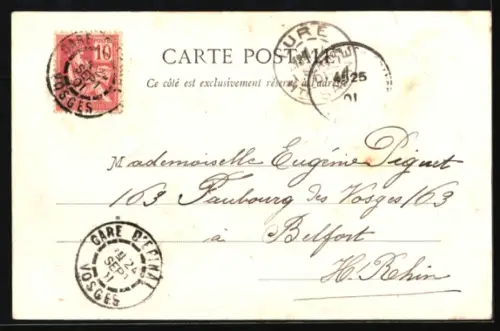 GARE
10
VOSGES
LURE
CARTE POSTALE
Ce côté est exclusivement réservé à l'adresse
25
01
Mademoiselle Eugénie Piguet
163 Faubourg des Vosges 163
à Belfort
H. Rhin
GARE D'EPINAL
24
SEPT
01
VOSGES